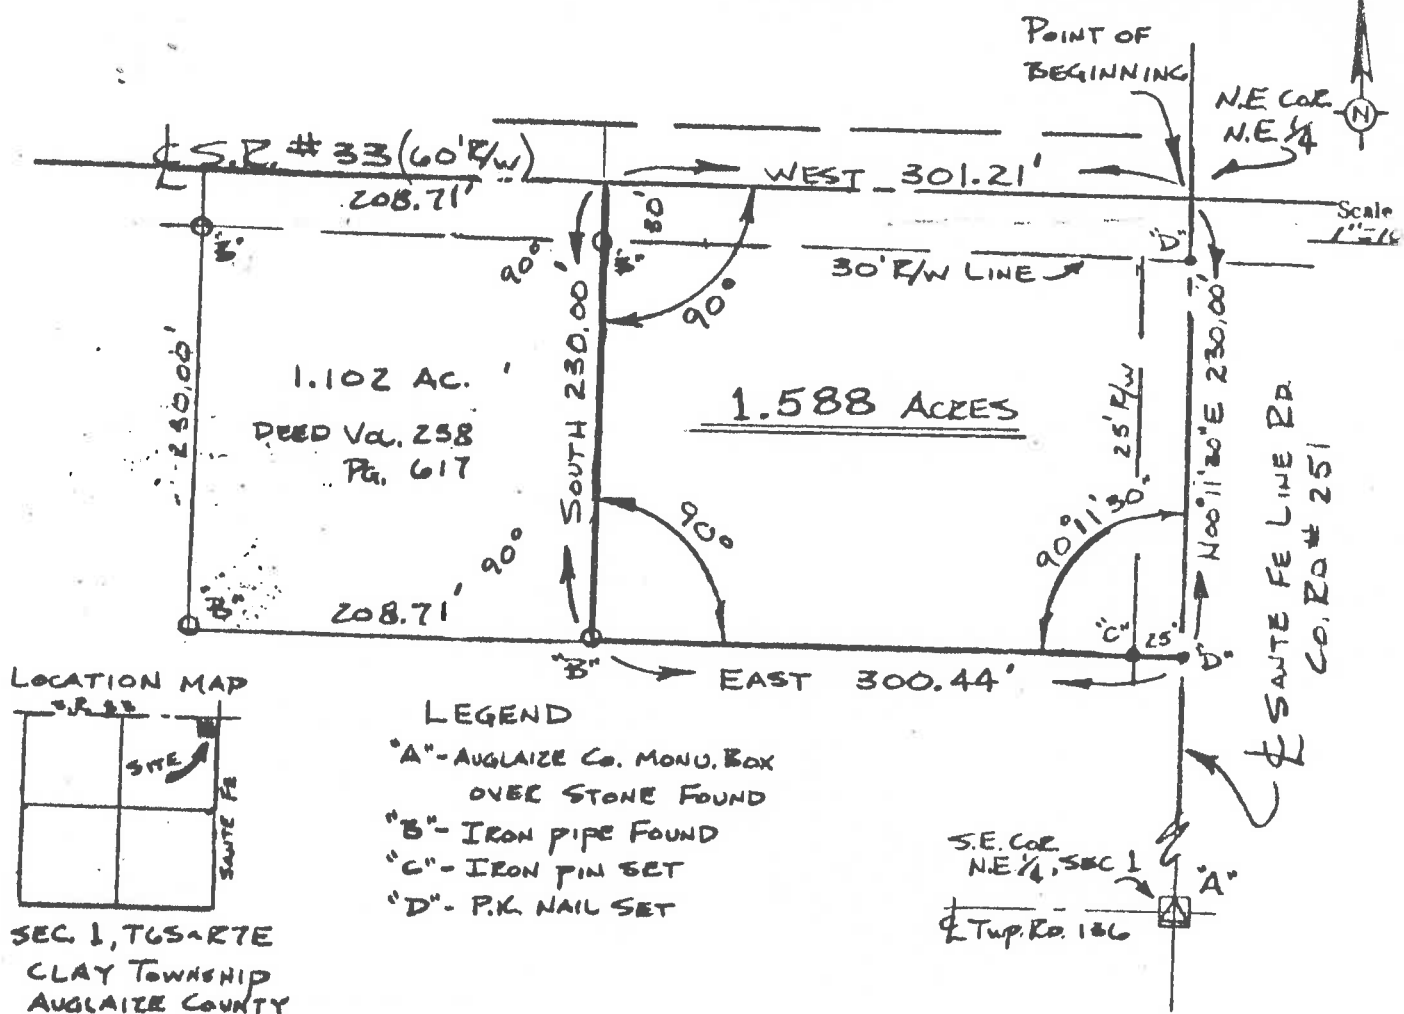 POINT OF
BEGINNING
N.E COR.
N.E. ¼
N
℄ S.R. #33 (60' R/W)
208.71'
WEST 301.21'
Scale
30'
"B"
"B"
90°
90°
30' R/W LINE
"D"
230.00'
SOUTH 230.00'
1.102 AC.
DEED VOL. 258
PG. 617
1.588 ACRES
25' R/W
N00°11'30"E 230.00'
℄ SANTE FE LINE RD
CO. RD # 251
90°
90°
90°11'30"
"B"
208.71'
"B"
EAST 300.44'
"C"
25'
"D"
LOCATION MAP
S.R. 33
SITE
SANTE FE
SEC. 1, T6S-R7E
CLAY TOWNSHIP
AUGLAIZE COUNTY
LEGEND
"A"- AUGLAIZE CO. MONU. BOX
OVER STONE FOUND
"B"- IRON PIPE FOUND
"C"- IRON PIN SET
"D"- P.K. NAIL SET
S.E. COR
N.E. ¼, SEC 1
"A"
℄ TWP. RD. 136